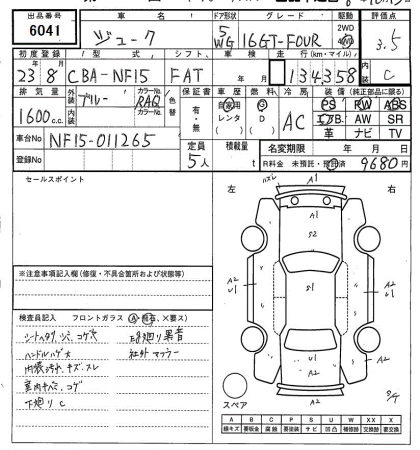 出品番号 車名 ドア形状 グレード 駆動 評価点
6041 ジューク 5 WG 16GT-FOUR 2WD 3.5
初度登録 型式 シフト 車検 走行(km・マイル) 内装
23年 8月 CBA-NF15 FAT 年 月 134358 C
排気量 外装 ブルー カラーNo. RAQ 色替 保証書 車歴 燃料 冷房 装備(純正部品に限る)
1600c.c. 内装 カラーNo. 有・無 自家用 レンタ G D AC PS PW ABS
エアB AW SR
革 ナビ TV
車台No NF15-011265 定員 積載量 名変期限 年 月 日
登録No 5人 t R料金 未預託・預託済 9680円
セールスポイント 左 右
A1
A1
S2
A2 U1
S1
A2 U1
U1
A2
A2
※注意事項記入欄(修復・不具合箇所および状態等)
検査員記入 フロントガラス(A、飛石、×要ス)
シートヘタリ、シミ、コゲ穴
ハンドルハゲ大
内装汚れ、キズ、スレ
室内
下廻りC
社外マフラー
スペア
A B C P S U W X XX
線キズ 要板金 腐蝕 要塗装 サビ 凹凸 補修跡 要交換 交換済